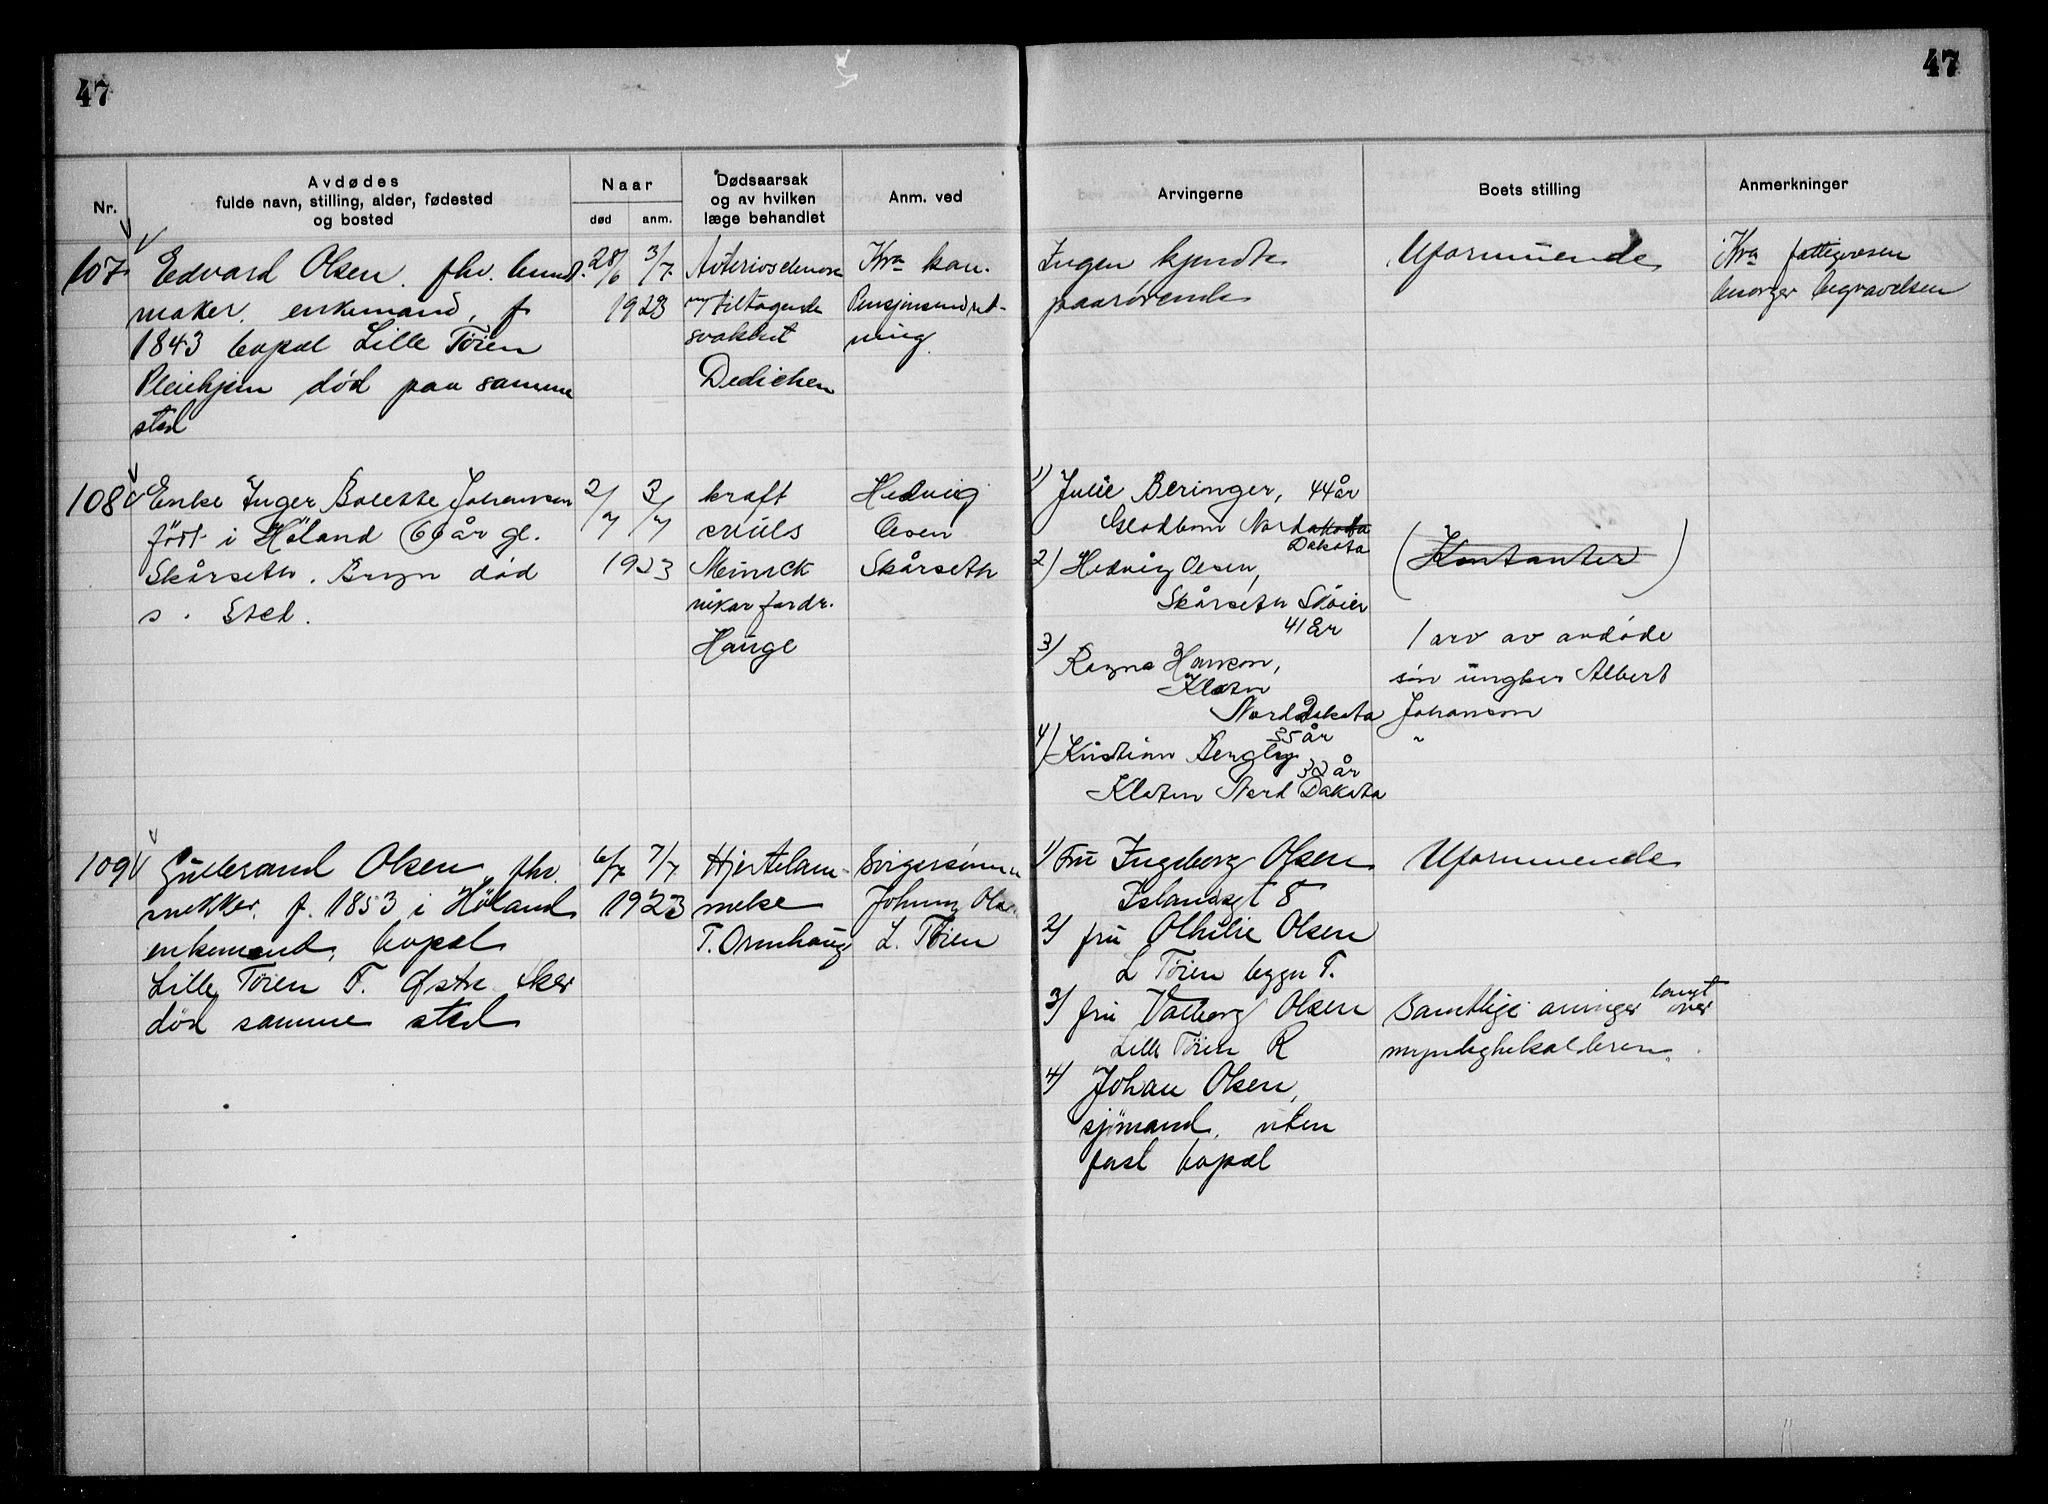 47
47
Nr.
Avdødes
fulde navn, stilling, alder, fødested
og bosted
Naar
død
anm.
Dødsaarsak
og av hvilken
læge behandlet
Anm. ved
Arvingerne
Boets stilling
Anmerkninger
107
Edvard Olsen. fhv. bundt.
maker, enkemand, f.
1843 bopæl Lille Tøien
Pleiehjem død paa samme
sted
28/6 3/7
1923
tiltagende
svakhet
Dedichen
Kra kom.
Pensjonsindret-
ning.
Ingen kjendte
paarørende
Uformuende
Kra fattigvæsen
besørger begravelsen
108
Enke Inger Bolette Johansen
født i Höland 66 år gl.
Skårseth. Bryn död
s. Sted.
2/7 3/7
1923
kraft
Hauge
Hedvig
Olsen
Skårseth
1) Julie Beringer, 44 år
Nord
Dakota
2) Hedvig Olsen,
Skårseth Skøier
41 År
3) Ragna Hanson,
Nord Dakota
35 år
4) Kristian
32 år
Nord Dakota
(Kontanter)
1 arv av avdöde
sön ungkar Albert
Johanson
"
109
Gulbrand Olsen, fhv.
f. 1853 i Höland
enkemand, bopæl
Lille Tøien T. Østre Aker
död samme sted
6/7 7/7
1923
Hjertelam-
melse
T. Ormhaug
Svigersønnen
Johnny Olsen
L. Tøien
1) Fru Ingeborg Olsen
Islandsgt 8
2) fru Othilie Olsen
L Tøien bygn T.
3) fru Valborg Olsen
Lille Tøien R
4) Johan Olsen,
sjömand, uten
fast bopæl
Uformuende
Samtlige arvinger langt over
myndighetsalderen.